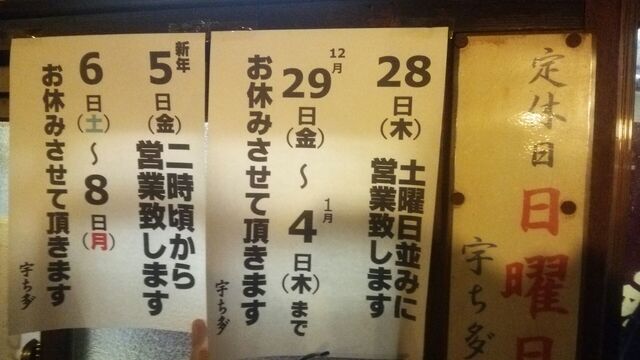 定休日
日曜日
宇ち多
28日(木)
土曜日並みに
営業致します
12月
29日(金)〜
1月
4日(木)まで
お休みさせて頂きます
宇ち多
新年
5日(金)
二時頃から
営業致します
6日(土)〜8日(月)
お休みさせて頂きます
宇ち多